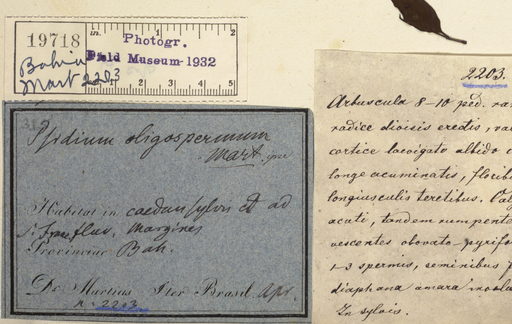 19718
in. 1
Photogr.
Field Museum-1932
Bahia
Mart 2203
1 2 3 4 5
Psidium oligospermum
Mart.
Habitat in caeduis sylvis et ad
S. fluv. margines
Provinciae Bah.
Dr. Martius Iter Brasil. Apr.
n. 2203
2203.
Arbuscula 8-10 ped.
radice divisis erectis,
cortice laevigato albido
longe acuminatis,
longiusculis teretibus.
acuti, tandem
vescentes obovato-pyrifo
1-3 spermis, seminibus
diaphana amara
In sylvis.